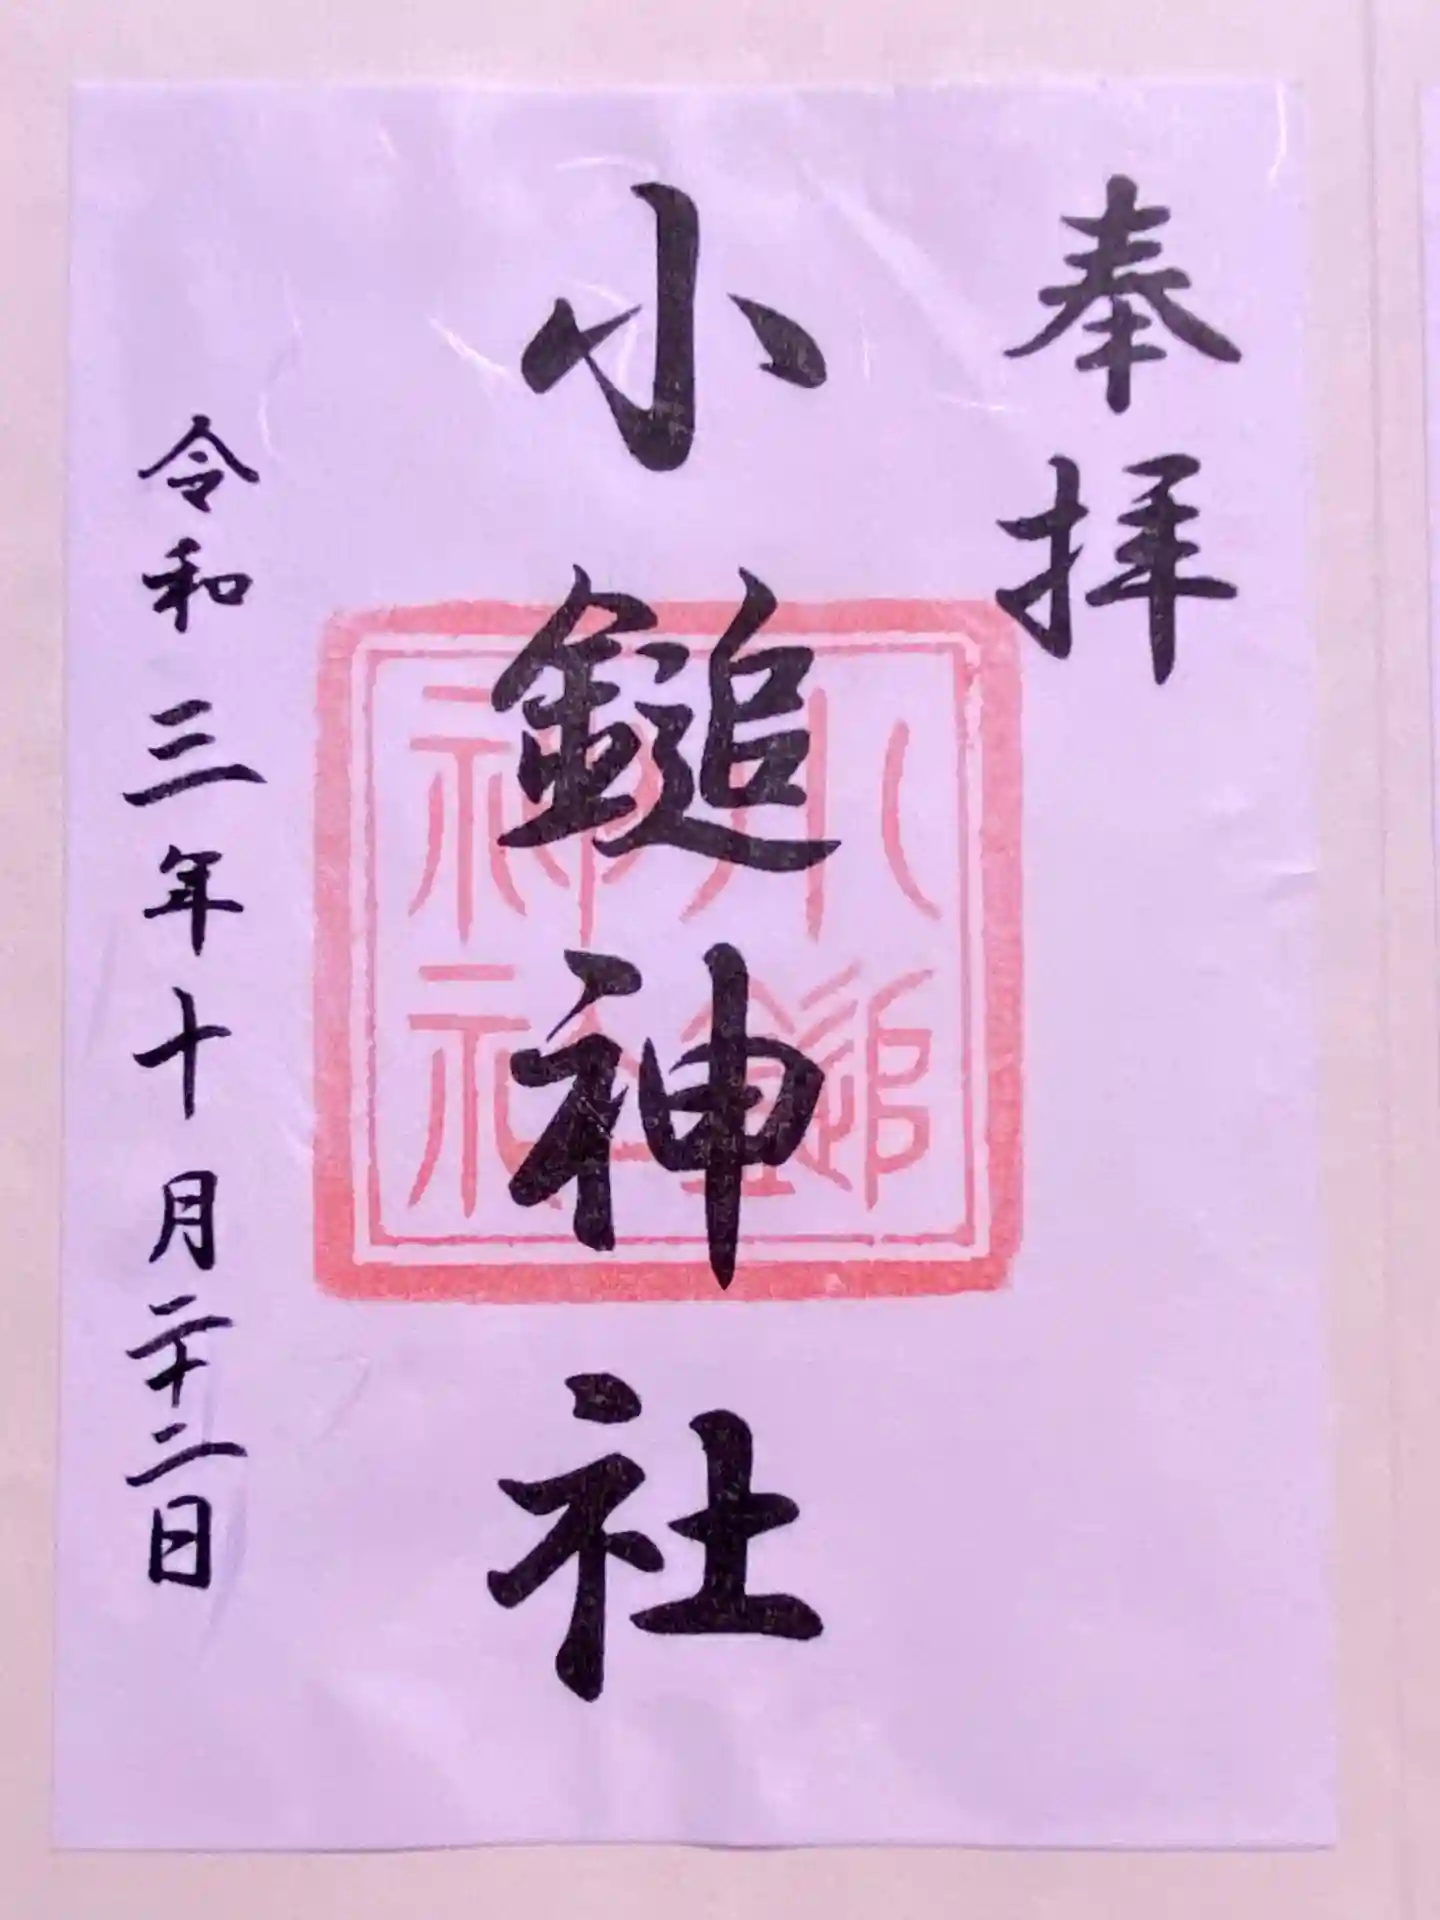 奉拝
小鎚神社
小鎚神社
令和三年十月二十二日